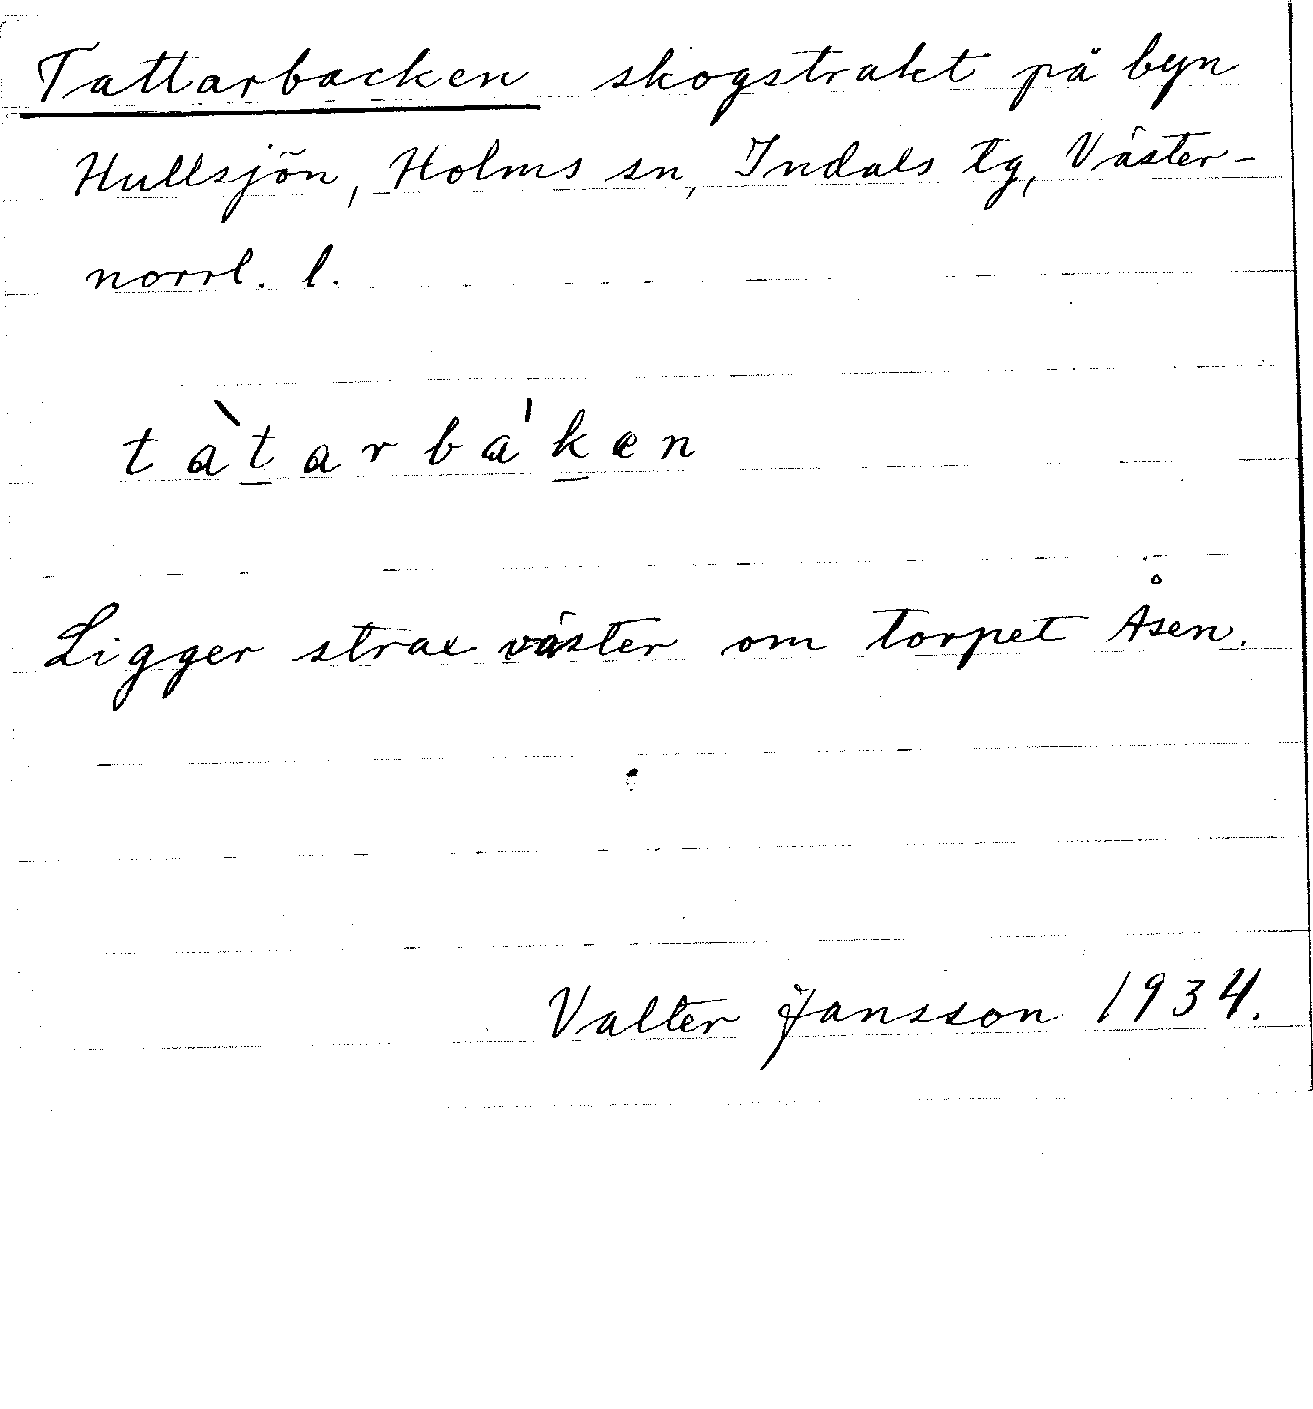 Tattarbacken skogstrakt på byn
Hullsjön, Holms sn, Indals tg, Väster-
norrl. l.
tàt̲arbáḵen
Ligger strax väster om torpet Åsen.
Valter Jansson 1934.